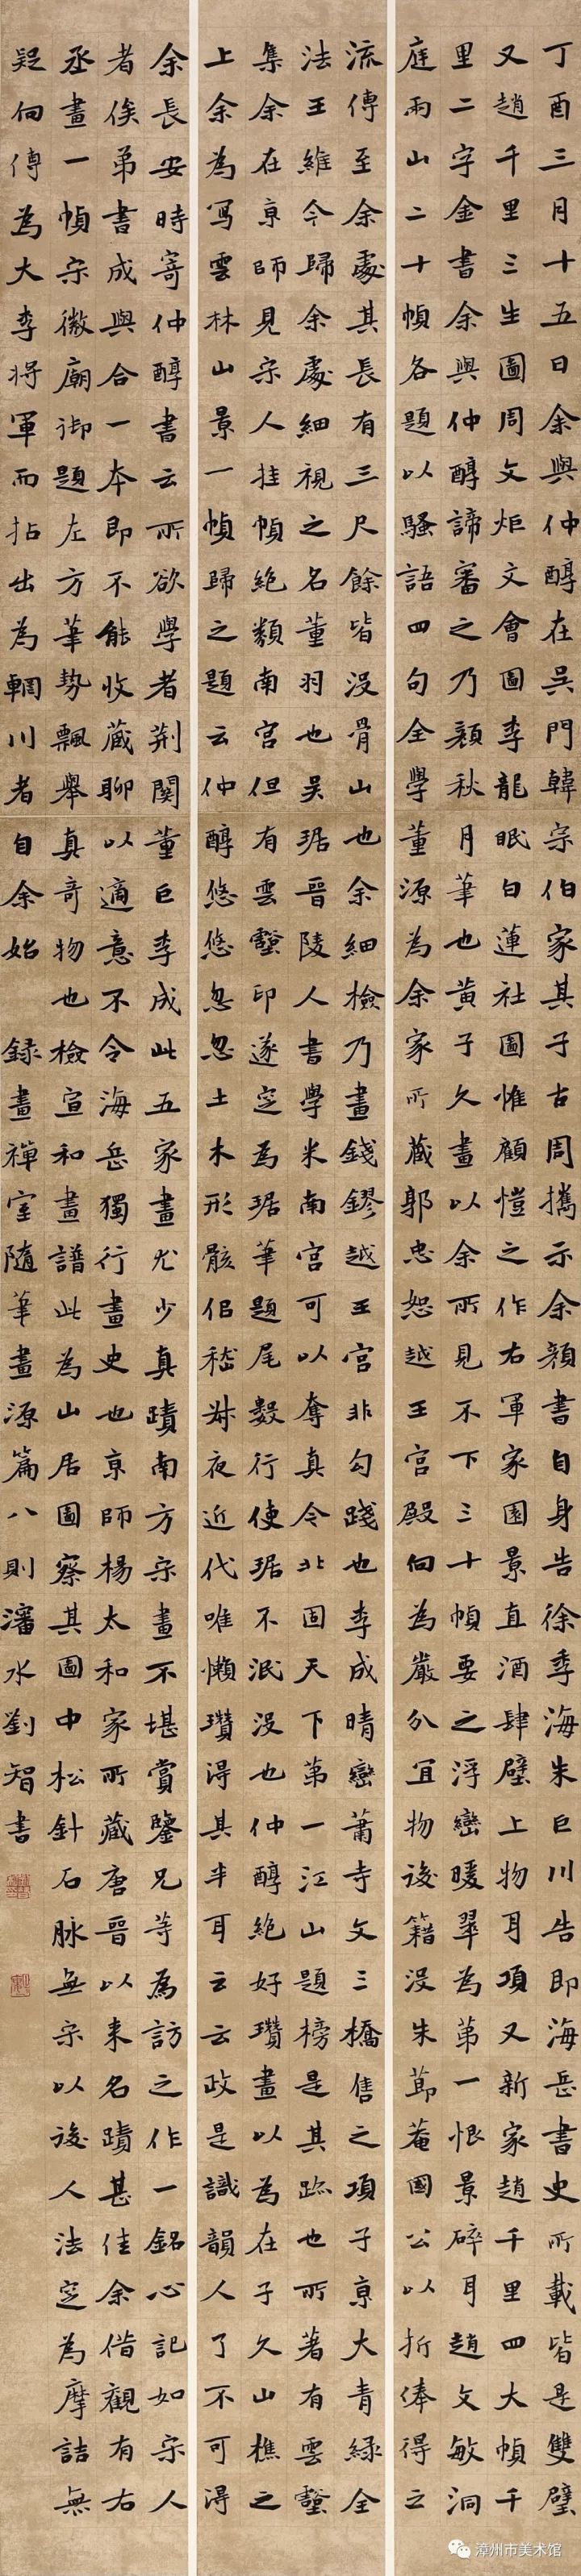 丁酉三月十五日余與仲醇在吳門韓宗伯家其子古周攜示余顏書自身告徐季海朱巨川告即海岳書史所載皆是雙璧
又趙千里三生圖周文炬文會圖李龍眠白蓮社圖惟顧愷之作右軍家園景直酒肆壁上物耳項又新家趙千里四大幀千
里二字金書余與仲醇諦審之乃顏秋月筆也黃子久畫以余所見不下三十幀要之浮巒暖翠為第一恨景碎耳趙文敏洞
庭兩山二十幀各題以騷語四句全學董源為余家所藏郭忠恕越王宮殿向為嚴分宜物後籍沒朱節菴國公以折俸得之
流傳至余處其長有三尺餘皆沒骨山也余細檢乃畫錢鏐越王宮非勾踐也李成晴巒蕭寺文三橋售之項子京大青綠全
法王維今歸余處細視之名董羽也吳琚晉陵人書學米南宮可以奪真今北固天下第一江山題榜是其跡也所著有雲壑
集余在京師見宋人挂幀絕類南宮但有雲壑印遂定為琚筆題尾數行使琚不泯沒也仲醇絕好瓚畫以為在子久山樵之
上余為寫雲林山景一幀歸之題云仲醇悠悠忽忽土木形骸侣嵇叔夜近代唯懶瓚得其半耳云云政是識韻人了不可得
余長安時寄仲醇書云所欲學者荆關董巨李成此五家畫尤少真蹟南方宋畫不堪賞鑒兄等為訪之作一銘心記如宋人
者俟弟書成與合一本即不能收藏聊以適意不令海岳獨行畫史也京師楊太和家所藏唐晉以來名蹟甚佳余借觀有右
丞畫一幀宋徽廟御題左方筆勢飄舉真奇物也檢宣和畫譜此為山居圖察其圖中松針石脉無宋以後人法定為摩詰無
疑向傳為大李將軍而拈出為輞川者自余始 錄畫禪室隨筆畫源篇八則瀋水劉智書
漳州市美术馆